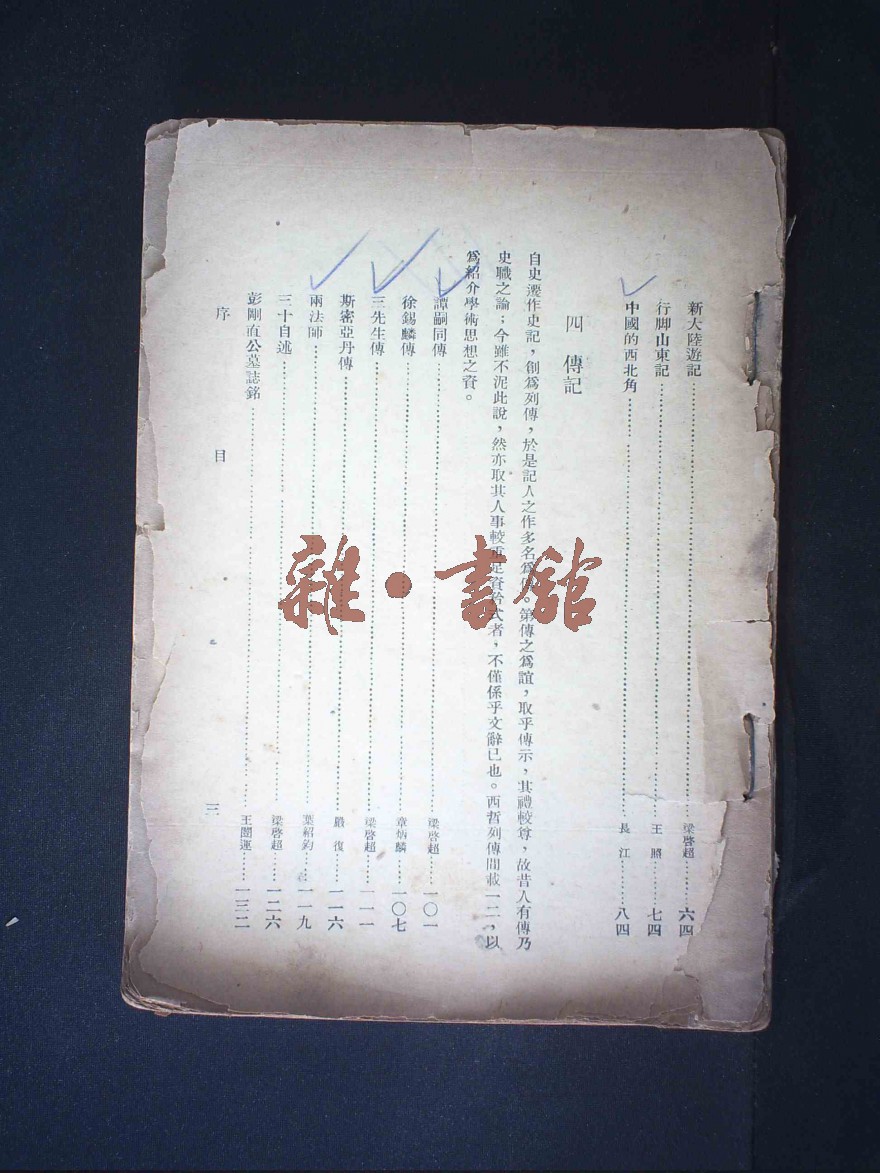 新大陸遊記……梁啓超……六四
行脚山東記……王照……七四
中國的西北角……長江……八四
四 傳記
自史遷作史記，創爲列傳，於是記人之作多名爲傳。第傳之爲誼，取乎傳示，其禮較尊，故昔人有傳乃
史職之論；今雖不泥此說，然亦取其人事較重足資矜式者，不僅係乎文辭已也。西哲列傳間載一二，以
爲紹介學術思想之資。
譚嗣同傳……梁啓超……一〇一
徐錫麟傳……章炳麟……一〇七
三先生傳……梁啓超……一一一
斯密亞丹傳……嚴復……一一六
兩法師……葉紹鈞……一一九
三十自述……梁啓超……一二六
彭剛直公墓誌銘……王闓運……一三二
序 目 三
雜·書館